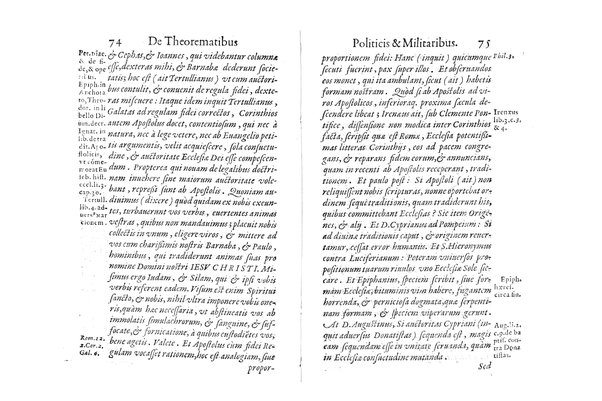 74 De Theorematibus
& Cephas, & Ioannes, qui videbantur columnæ
esse, dexteras mihi, & Barnabæ dederunt socie-
tatis; hoc est (ait Tertullianus) vt cum auctori-
bus contulit, & conuenit de regula fidei, dexte-
ras miscuere: Itaque idem inquit Tertullianus,
Galatas ad regulam fidei correctos, Corinthios
autem Apostolus docet, contentiosum, qui nec à
natura, nec à lege vetere, nec ab Euangelio peti-
tis argumentis, velit acquiescere, sola consuetu-
dine, & auctoritate Ecclesiæ Dei esse compescen-
dum. Propterea qui nouam de legalibus doctri-
nam inuehere sine maiorum auctoritate vole-
bant, represi sunt ab Apostolis. Quoniam au-
diuimus (dixere) quòd quidam ex nobis exeun-
tes, turbauerunt vos verbis, euertentes animas
vestras, quibus non mandauimus; placuit nobis
collectis in vnum, eligere viros, & mittere ad
vos cum charissimis nostris Barnaba, & Paulo,
hominibus, qui tradiderunt animas suas pro
nomine Domini nostri IESV CHRISTI. Mi-
simus ergo Iudam, & Silam, qui & ipsi vobis
verbis referent eadem. Visum est enim Spiritui
sancto, & nobis, nihil vltra imponere vobis one-
ris, quàm hæc necessaria, vt abstineatis vos ab
immolatis simulachrorum, & sanguine, & suf-
focato, & fornicatione, à quibus custodiẽtes vos,
bene agetis. Valete. Et Apostolus cum fidei Re-
gulam vocasset rationem, hoc est analogiam, siue
propor-
Epiph. in
Archora
to, Theo
dor. in li
bello De
Ignat. in
cap. 30.
Tertull.
lib. 4. ad-
cionem.
Rom. 12.
2. Cor. 2.
Gal. 6.
Politicis & Militaribus. 75
proportionem fidei: Hanc (inquit) quicumque
secuti fuerint, pax super illos. Et obseruandos
eos monet, qui ita ambulant, sicut (ait) habetis
formam nostram. Quòd si ab Apostolis ad vi-
ros Apostolicos, inferioraq. proxima sæcula de-
scendere libeat; Irenæus ait, sub Clemente Pon-
tifice, dissensione non modica inter Corinthios
facta, scripsisse quæ est Romæ, Ecclesia potentissi-
mas litteras Corinthijs, eos ad pacem congre-
gans, & reparans fidem eorum, & annuncians,
quam in recenti ab Apostolis receperant, tradi-
tionem. Et paulo post: Si Apostoli (ait) non
reliquissent nobis scripturas, nonne oportebat or-
dinem sequi traditionis, quam tradiderunt his,
quibus committebant Ecclesias? Sic item Orige-
nes, & alij. Et D. Cyprianus ad Pompeium: Si
ad diuinæ traditionis caput, & originem reuer-
tamur, cessat error humanus. Et S. Hieronymus
contra Luciferianum: Poteram vniuersos pro-
positionum tuarum riuulos vno Ecclesiæ Sole sic-
care. Et Epiphanius, speciem scribit, siue for-
mam Ecclesiæ, bituminis vim habere, fugantem
horrenda, & perniciosa dogmata, quæ serpenti-
nam formam, & speciem viperarum gerunt.
At D. Augustinus, Si auctoritas Cypriani (in-
quit aduersus Donatistas) sequenda est, magis
eam sequendam esse in vnitate seruanda, quàm
in Ecclesiæ consuetudine mutanda.
Sed
Phil. 3.
Irenæus
lib. 3. c. 3.
& 4.
Epiph.
hæresi.
circa fin.
Aug. li. 2.
c. 9. de ba
ptis. con-
tra Dona
tistas.